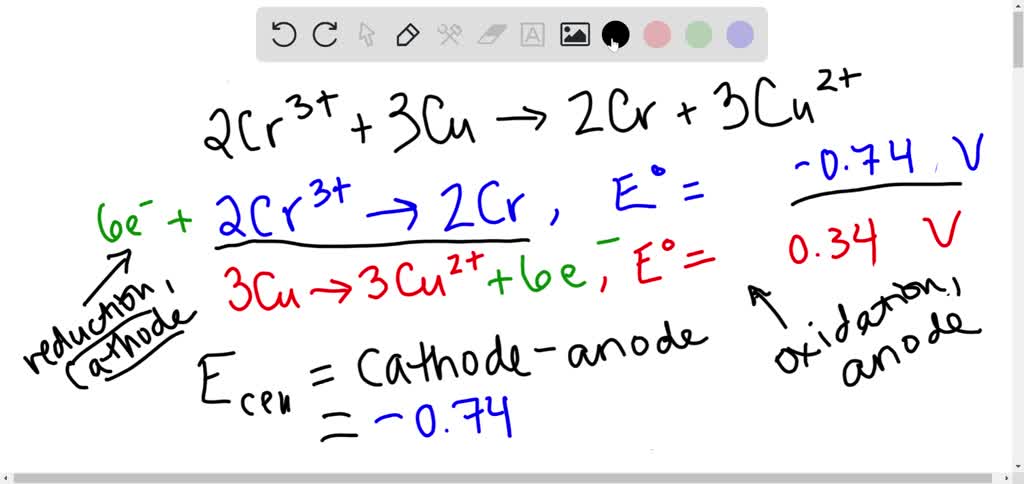 2Cr³⁺ + 3Cu → 2Cr + 3Cu²⁺
6e⁻ + 2Cr³⁺ → 2Cr, E° = -0.74 V
3Cu → 3Cu²⁺ + 6e⁻, E° = 0.34 V
reduction,
cathode
oxidation,
anode
E cell = cathode - anode
= -0.74